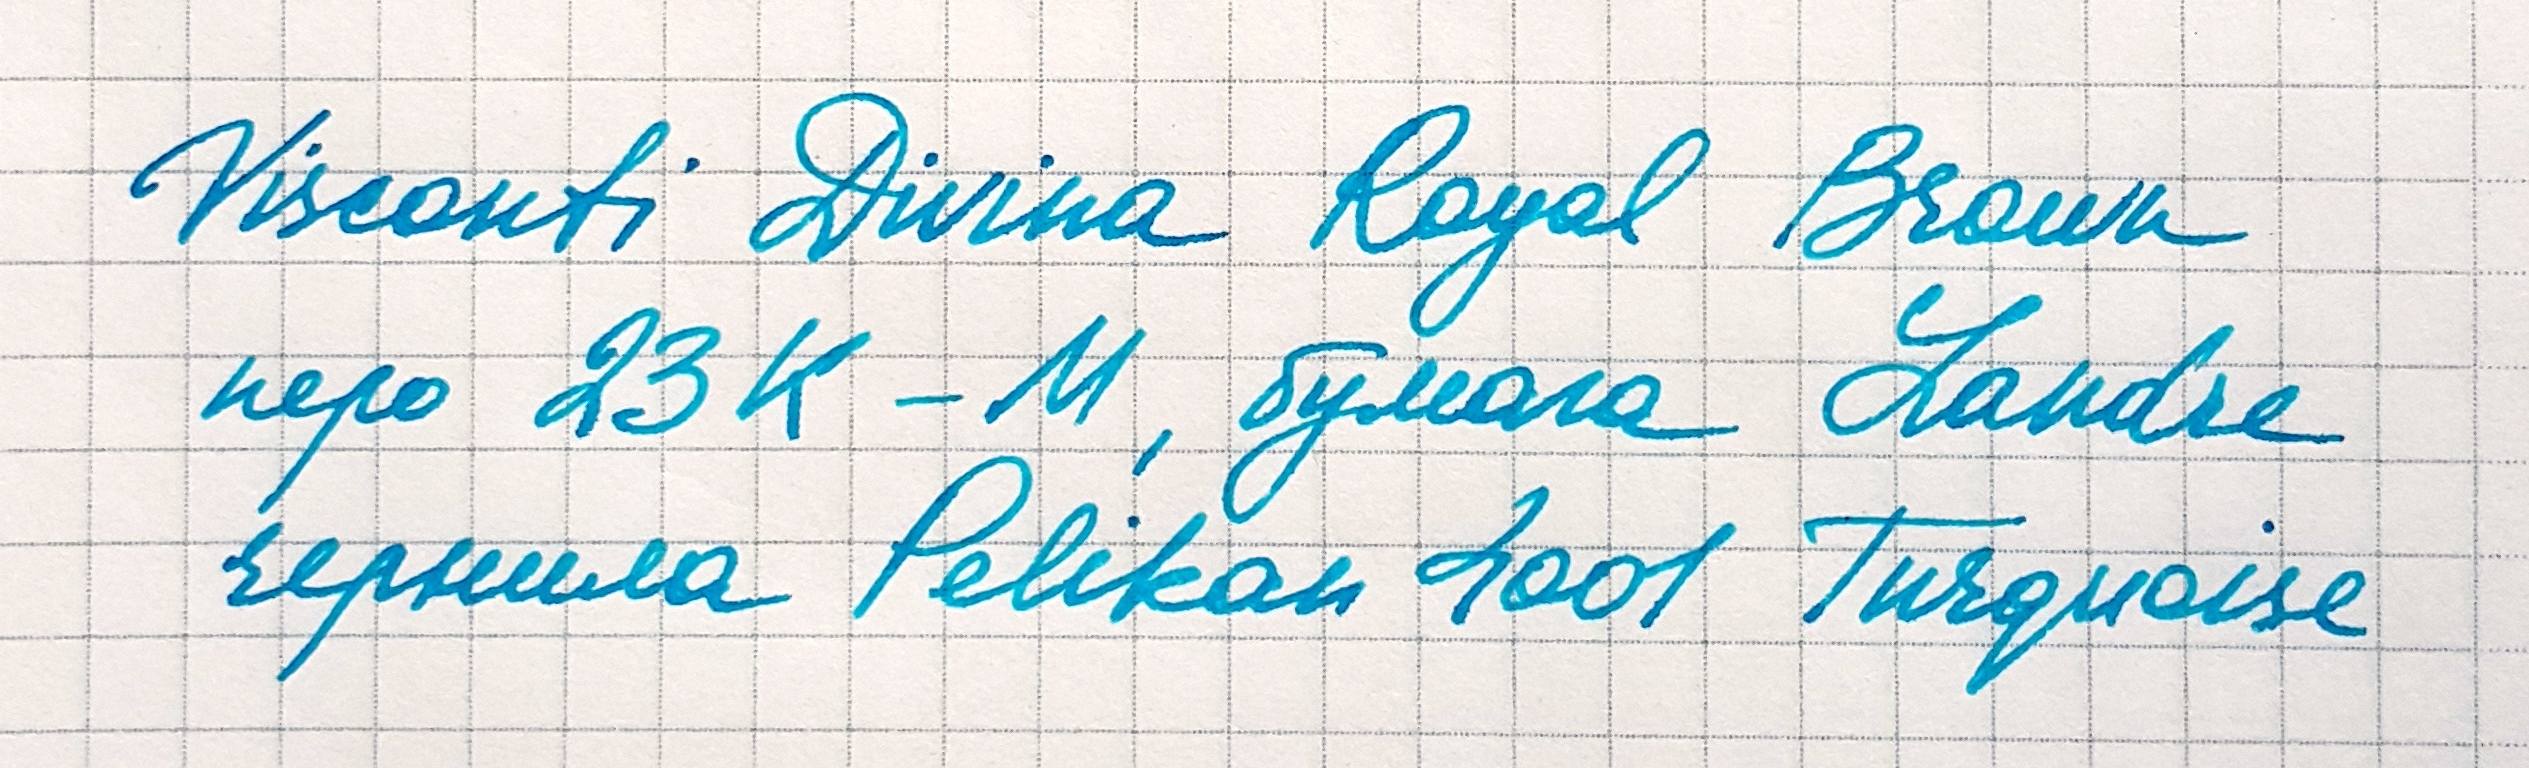 Visconti Divina Royal Brown
перо 23К - М, бумага Landre
чернила Pelikan 4001 Turquoise